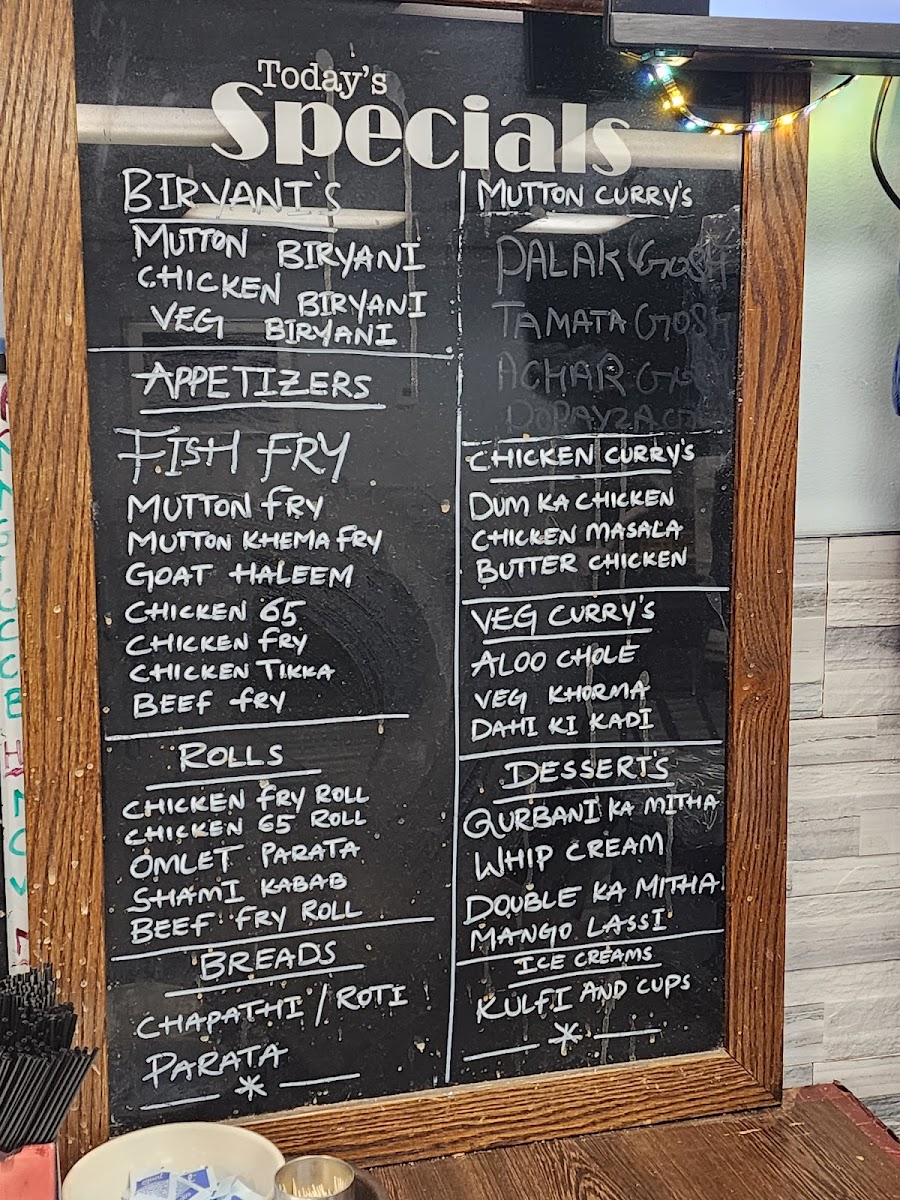 Today's
Specials
BIRYANI'S
MUTTON BIRYANI
CHICKEN BIRYANI
VEG BIRYANI
APPETIZERS
FISH FRY
MUTTON FRY
MUTTON KHEMA FRY
GOAT HALEEM
CHICKEN 65
CHICKEN FRY
CHICKEN TIKKA
BEEF FRY
ROLLS
CHICKEN FRY ROLL
CHICKEN 65 ROLL
OMLET PARATA
SHAMI KABAB
BEEF FRY ROLL
BREADS
CHAPATHI / ROTI
PARATA
MUTTON CURRY'S
PALAK GOSH
TAMATA GOSH
ACHAR
CHICKEN CURRY'S
DUM KA CHICKEN
CHICKEN MASALA
BUTTER CHICKEN
VEG CURRY'S
ALOO CHOLE
VEG KHORMA
DAHI KI KADI
DESSERT'S
QURBANI KA MITHA
WHIP CREAM
DOUBLE KA MITHA
MANGO LASSI
ICE CREAMS
KULFI AND CUPS